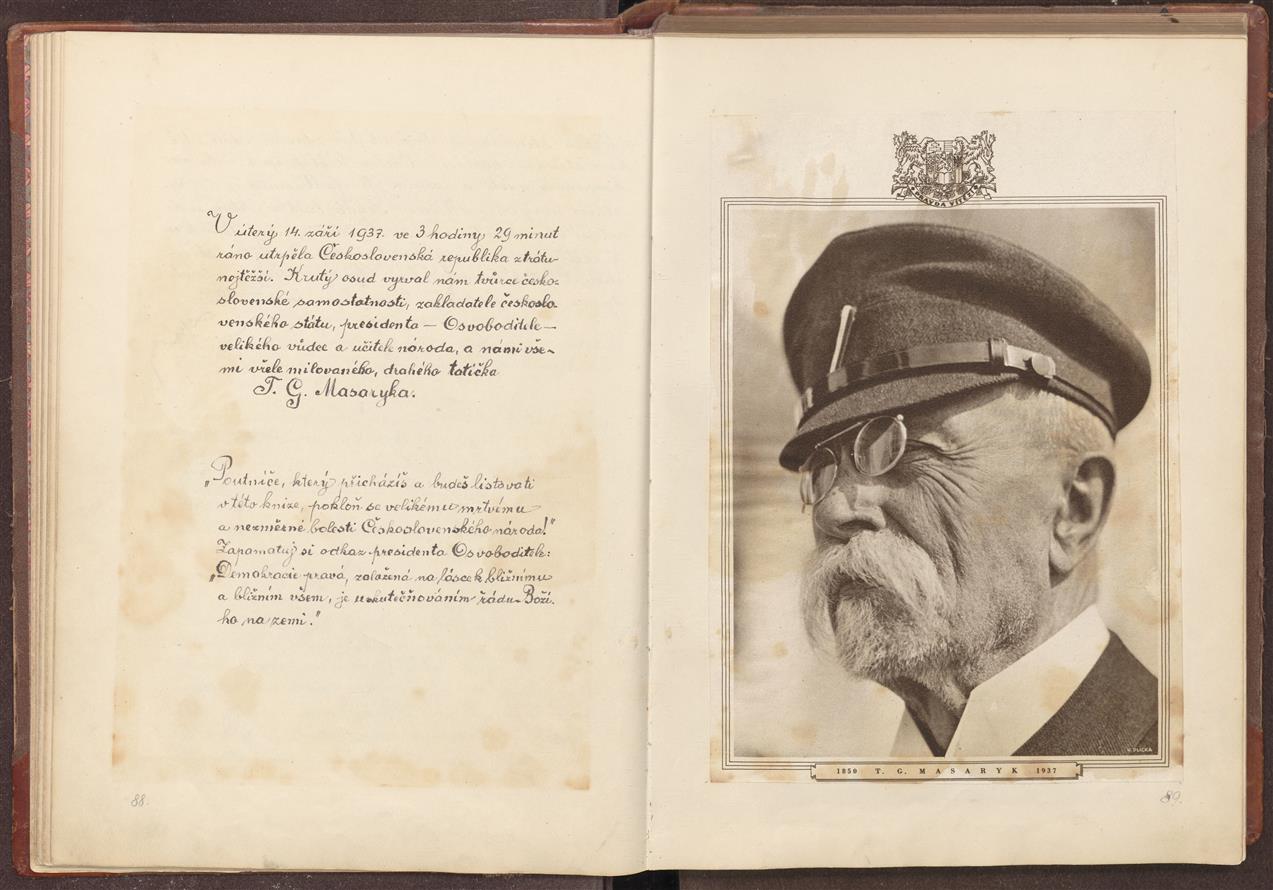 V úterý 14. září 1937. ve 3 hodiny 29 minut
ráno utrpěla Československá republika ztrátu
nejtěžší. Krutý osud vyrval nám tvůrce česko-
slovenské samostatnosti, zakladatele českoslo
venského státu, presidenta – Osvoboditele –
velikého vůdce a učitele národa, a námi vše-
mi vřele milovaného, drahého tatíčka
T. G. Masaryka.
„Poutníče, který přicházíš a budeš listovati
v této knize, pokloň se velikému mrtvému
a nezměrné bolesti Československého národa!"
Zapamatuj si odkaz presidenta Osvoboditele:
„Demokracie pravá, založená na lásce k bližnímu
a bližním všem, je uskutečňováním řádu Boží-
ho na zemi."
88.
PRAVDA VÍTĚZÍ
K. PLICKA
1850 T. G. MASARYK 1937
89.